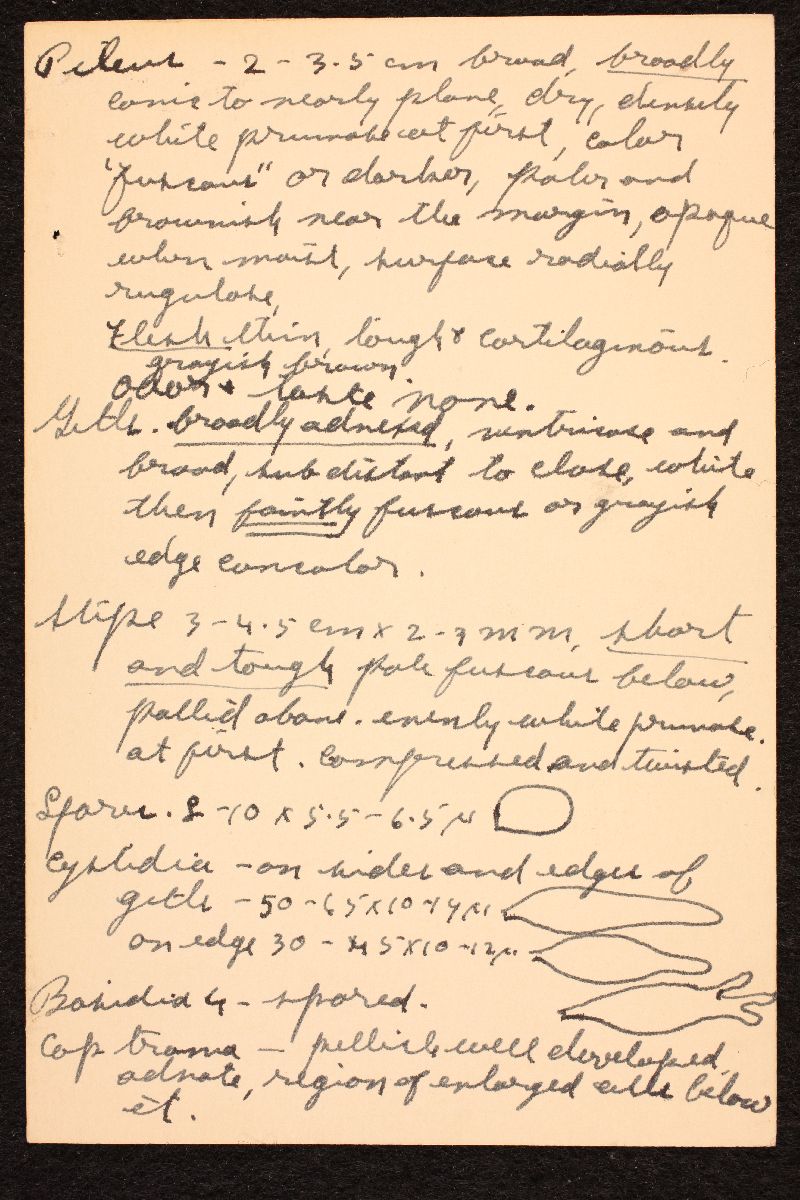 Pileus - 2 - 3.5 cm broad, broadly
conic to nearly plane, dry, densely
white pruinose at first, color
"fuscous" or darker, paler and
brownish near the margin, opaque
when moist, surface radially
rugulose,
Flesh thin, tough & cartilaginous.
grayish brown.
Odor & taste none.
Gills. broadly adnexed, ventricose and
broad, subdistant to close, white
then faintly fuscous or grayish
edge concolor.
Stipe 3-4.5 cm x 2-3 mm, short
and tough pale fuscous below,
pallid above. evenly white pruinose.
at first. Compressed and twisted.
Spores. 8-10 x 5.5-6.5 µ
Cystidia - on sides and edges of
gills - 50-65x10-14µ,
on edge 30-45x10-12µ.
Basidia 4-spored.
Cap trama - pellicle well developed,
adnate, region of enlarged cells below
it.